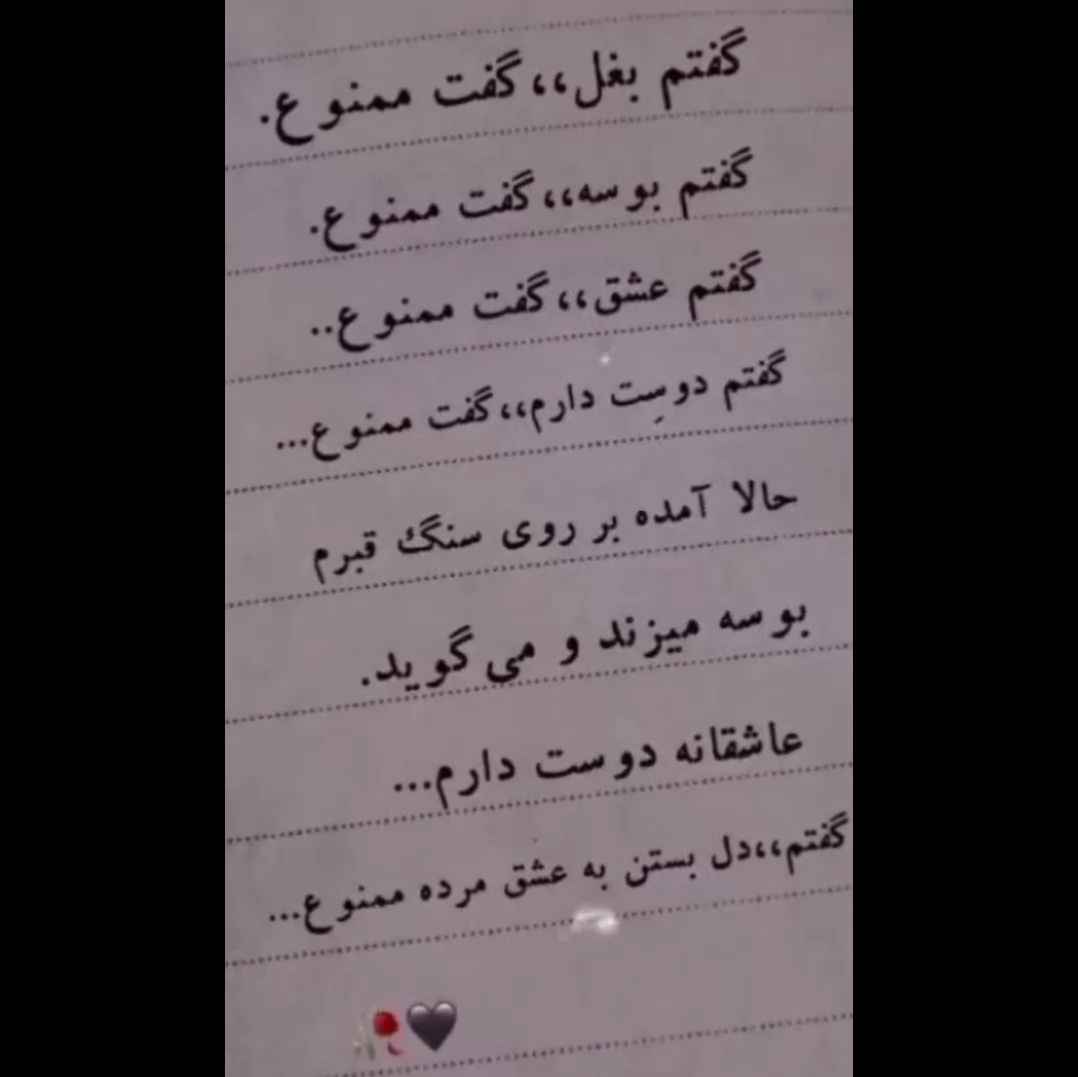 گفتم بغل،،گفت ممنوع.
گفتم بوسه،،گفت ممنوع.
گفتم عشق،،گفت ممنوع..
گفتم دوسِت دارم،،گفت ممنوع...
حالا آمده بر روی سنگ قبرم
بوسه میزند و می گوید.
عاشقانه دوست دارم...
گفتم،،دل بستن به عشق مرده ممنوع...
🖤🥀